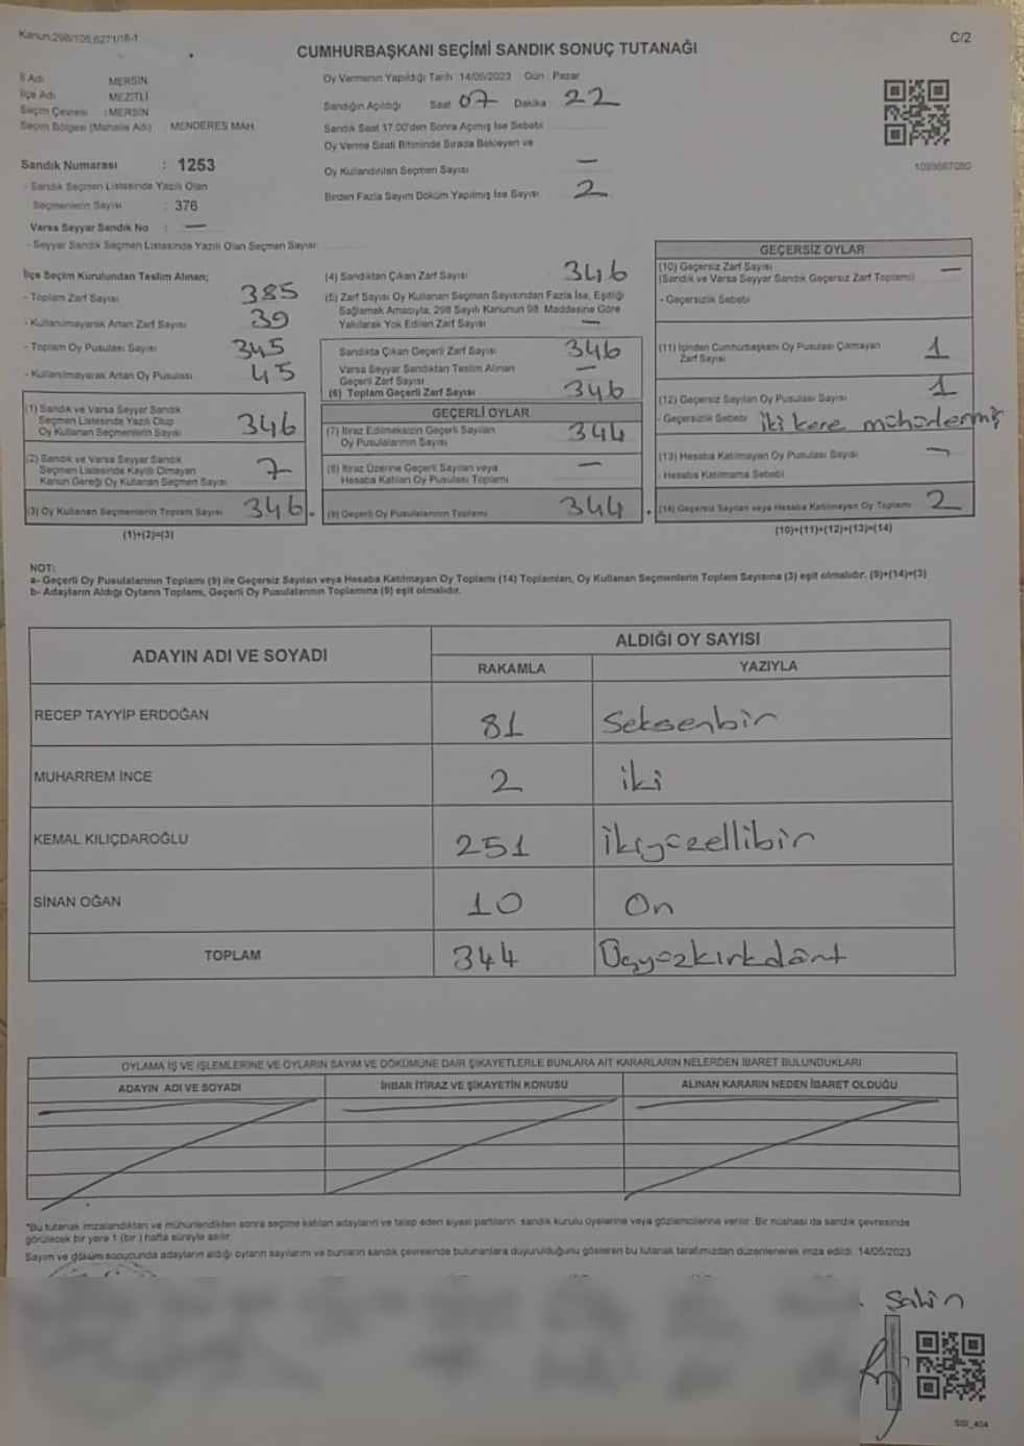 Kanun:298/105,6271/18-1
C/2
CUMHURBAŞKANI SEÇİMİ SANDIK SONUÇ TUTANAĞI
İl Adı MERSİN
İlçe Adı MEZİTLİ
Seçim Çevresi : MERSİN
Seçim Bölgesi (Mahalle Adı) MENDERES MAH.
Sandık Numarası : 1253
- Sandık Seçmen Listesinde Yazılı Olan
Seçmenlerin Sayısı : 376
Varsa Seyyar Sandık No : —
- Seyyar Sandık Seçmen Listesinde Yazılı Olan Seçmen Sayısı
Oy Vermenin Yapıldığı Tarih :14/05/2023 Gün : Pazar
Sandığın Açıldığı Saat 07 Dakika 22
Sandık Saat 17.00'den Sonra Açılmış İse Sebebi
Oy Verme Saati Bitiminde Sırada Bekleyen ve
Oy Kullandırılan Seçmen Sayısı —
Birden Fazla Sayım Döküm Yapılmış İse Sayısı 2
1099667080
İlçe Seçim Kurulundan Teslim Alınan;
- Toplam Zarf Sayısı 385
- Kullanılmayarak Artan Zarf Sayısı 39
- Toplam Oy Pusulası Sayısı 345
- Kullanılmayarak Artan Oy Pusulası 45
(1) Sandık ve Varsa Seyyar Sandık
Seçmen Listesinde Yazılı Olup
Oy Kullanan Seçmenlerin Sayısı 346
(2) Sandık ve Varsa Seyyar Sandık
Seçmen Listesinde Kayıtlı Olmayan
Kanun Gereği Oy Kullanan Seçmen Sayısı 7
(3) Oy Kullanan Seçmenlerin Toplam Sayısı 346
(1)+(2)=(3)
(4) Sandıktan Çıkan Zarf Sayısı 346
(5) Zarf Sayısı Oy Kullanan Seçmen Sayısından Fazla İse, Eşitliği
Sağlamak Amacıyla, 298 Sayılı Kanunun 98. Maddesine Göre
Yakılarak Yok Edilen Zarf Sayısı —
Sandıkta Çıkan Geçerli Zarf Sayısı 346
Varsa Seyyar Sandıktan Teslim Alınan
Geçerli Zarf Sayısı —
(6) Toplam Geçerli Zarf Sayısı 346
GEÇERLİ OYLAR
(7) İtiraz Edilmeksizin Geçerli Sayılan
Oy Pusulalarının Sayısı 344
(8) İtiraz Üzerine Geçerli Sayılan veya
Hesaba Katılan Oy Pusulası Toplamı —
(9) Geçerli Oy Pusulalarının Toplamı 344
GEÇERSİZ OYLAR
(10) Geçersiz Zarf Sayısı
(Sandık ve Varsa Seyyar Sandık Geçersiz Zarf Toplamı) —
- Geçersizlik Sebebi
(11) İçinden Cumhurbaşkanı Oy Pusulası Çıkmayan
Zarf Sayısı 1
(12) Geçersiz Sayılan Oy Pusulası Sayısı 1
- Geçersizlik Sebebi İki kere mühürlenmiş
(13) Hesaba Katılmayan Oy Pusulası Sayısı —
- Hesaba Katılmama Sebebi
(14) Geçersiz Sayılan veya Hesaba Katılmayan Oy Toplamı 2
(10)+(11)+(12)+(13)=(14)
NOT:
a- Geçerli Oy Pusulalarının Toplamı (9) ile Geçersiz Sayılan veya Hesaba Katılmayan Oy Toplamı (14) Toplamları, Oy Kullanan Seçmenlerin Toplam Sayısına (3) eşit olmalıdır. (9)+(14)=(3)
b- Adayların Aldığı Oyların Toplamı, Geçerli Oy Pusulalarının Toplamına (9) eşit olmalıdır.
ADAYIN ADI VE SOYADI
ALDIĞI OY SAYISI
RAKAMLA YAZIYLA
RECEP TAYYİP ERDOĞAN 81 Seksenbir
MUHARREM İNCE 2 iki
KEMAL KILIÇDAROĞLU 251 İkiyüzellibir
SİNAN OĞAN 10 On
TOPLAM 344 Üçyüzkırkdört
OYLAMA İŞ VE İŞLEMLERİNE VE OYLARIN SAYIM VE DÖKÜMÜNE DAİR ŞİKAYETLERLE BUNLARA AİT KARARLARIN NELERDEN İBARET BULUNDUKLARI
ADAYIN ADI VE SOYADI İHBAR İTİRAZ VE ŞİKAYETİN KONUSU ALINAN KARARIN NEDEN İBARET OLDUĞU
*Bu tutanak imzalandıktan ve mühürlendikten sonra seçime katılan adayların ve talep eden siyasi partilerin sandık kurulu üyelerine veya gözlemcilerine verilir. Bir nüshası da sandık çevresinde
görülecek bir yere 1 (bir) hafta süreyle asılır.
Sayım ve döküm sonucunda adayların aldığı oyların sayılarını ve bunların sandık çevresinde bulunanlara duyurulduğunu gösteren bu tutanak tarafımızdan düzenlenerek imza edildi. 14/05/2023
Şahin